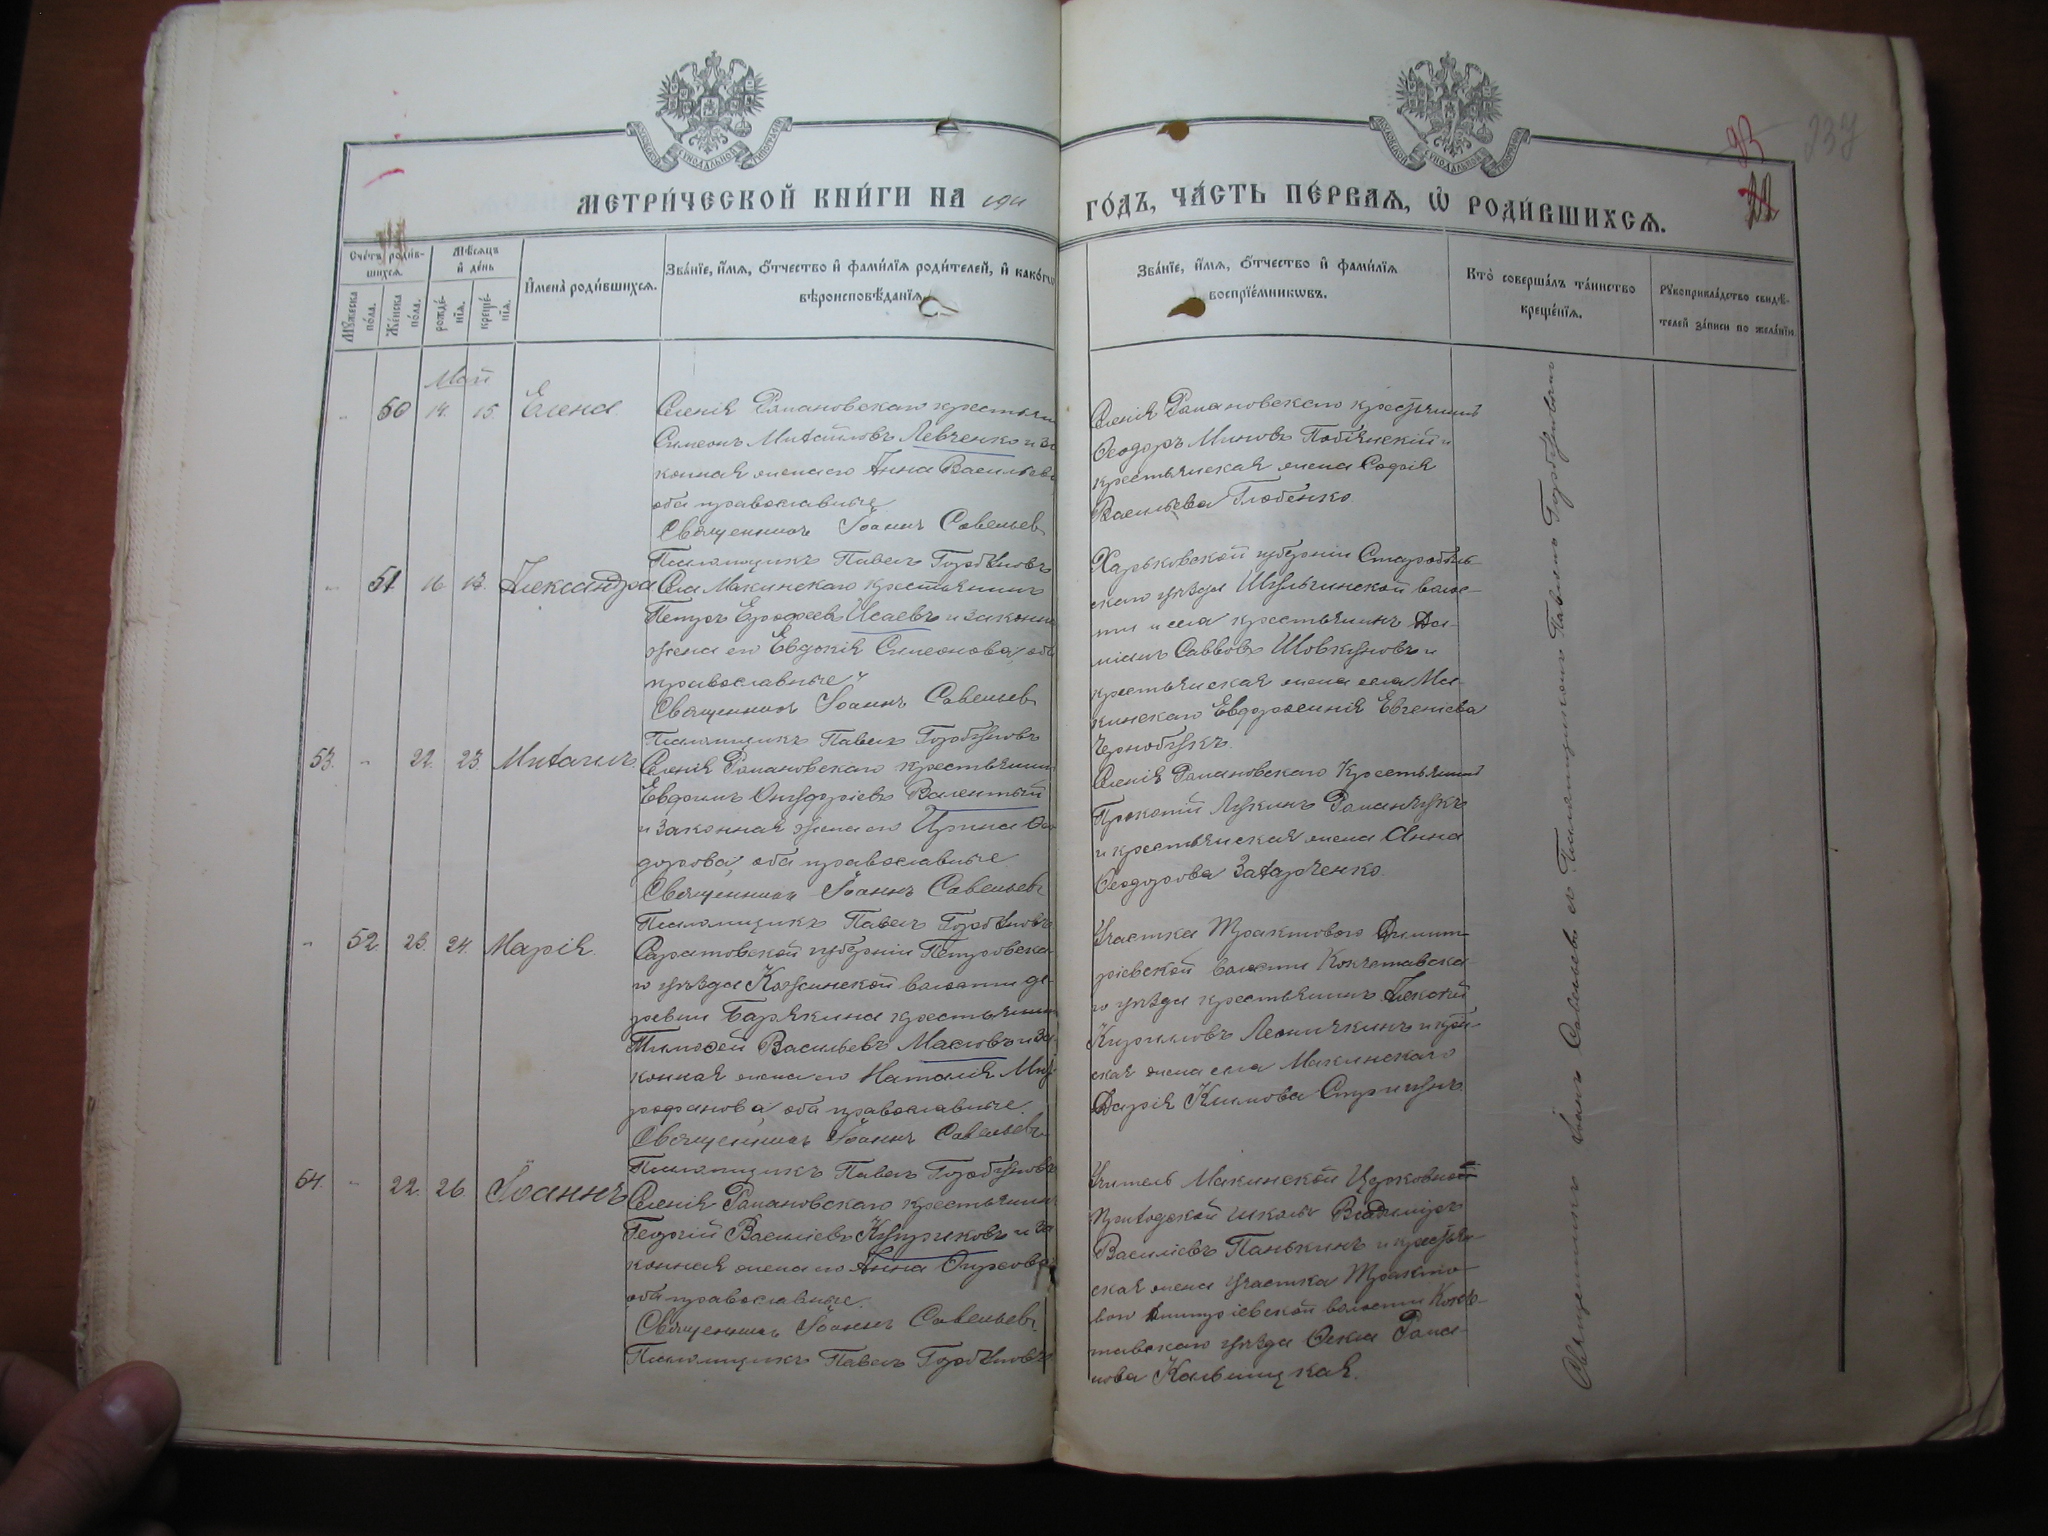 МЕТРИ́ЧЕСКОЙ КНИ́ГИ НА 1911 ГО́ДЪ, ЧА́СТЬ ПЕ́РВАѦ, Ѡ҆ РОДИ́ВШИХСѦ.
93
237
Сче́тъ роди́вшихсѧ.
Мѣ́сѧцъ и҆ де́нь
Мꙋ́жеска по́ла.
Же́нска по́ла.
рожде́нїѧ.
креще́нїѧ.
И҆мена̀ роди́вшихсѧ.
Зва́нїе, и҆́мѧ, ѻ҆́тчество и҆ фами́лїѧ роди́телей, и҆ како́гѡ
вѣроисповѣ́данїѧ.
Зва́нїе, и҆́мѧ, ѻ҆́тчество и҆ фами́лїѧ
воспрїе́мникѡвъ.
Кто̀ соверша́лъ та́инство
креще́нїѧ.
Рꙋкоприкла́дство свидѣ́-
телей за́писи по жела́нїю
Май
50 14. 15. Елена.
Селенія Романовскаго крестьянин
Симеонъ Михайловъ Левченко и за
конная жена его Анна Васильева
оба православные
Священникъ Іоаннъ Савельев
Псаломщикъ Павелъ Горбуновъ
Селенія Романовскаго крестьянинъ
Ѳеодоръ Миновъ и
крестьянская жена Софія
Васильева Глобенко.
51 16. 17. Александра
Села Макинскаго крестьянинъ
Петръ Ерофеевъ Исаевъ и законн
жена его Евдокія Симеонова, оба
православные
Священникъ Іоаннъ Савельев
Псаломщикъ Павелъ Горбуновъ
Харьковской губерніи Старобѣль-
скаго уѣзда Шульгинской волос-
ти и села крестьянинъ Да-
міанъ Саввовъ Шовкуновъ и
крестьянская жена села Ма-
кинскаго Евфросинія Евгеніева
Чернобукъ.
53. 22. 23. Михаилъ.
Селенія Романовскаго крестьянин
Евдоким Онуфріевъ Валентый
и законная жена его Ирина Ѳео
дорова, оба православные
Священникъ Іоаннъ Савельевъ
Псаломщикъ Павелъ Горбуновъ
Селенія Романовскаго Крестьянинъ
Прокопій Лукинъ Романчукъ
и крестьянская жена Анна
Ѳеодорова Захарченко.
52. 23. 24. Марія.
Саратовской губерніи Петровска
го уѣзда волости де-
ревни Барякина крестьянин
Тимоѳей Васильевъ Масловъ и за-
конная жена его Наталія Мит
рофанова, оба православные.
Священникъ Іоаннъ Савельевъ
Псаломщикъ Павелъ Горбуновъ
Участка Трактового Димит-
ріевской волости Кокчетавска-
го уѣзда крестьянинъ Алексій
Кирилловъ и крест
ская жена села Макинскаго
Дарія Климова
54. 22. 26. Іоаннъ
Селенія Романовскаго крестьянин
Георгій Василіевъ Куприковъ и за
конная жена его Анна
оба православные.
Священникъ Іоаннъ Савельевъ
Псаломщикъ Павелъ Горбуновъ
Учитель Макинской Церковной
Приходской школы Владиміръ
Василіевъ Панькинъ и крестьян-
ская жена участка Тракто-
вого Димитріевской волости Кокче-
тавскаго уѣзда Ѳекла Рома-
нова Кальницкая.
Священникъ Іоаннъ Савельевъ съ Псаломщикомъ Павломъ Горбуновымъ